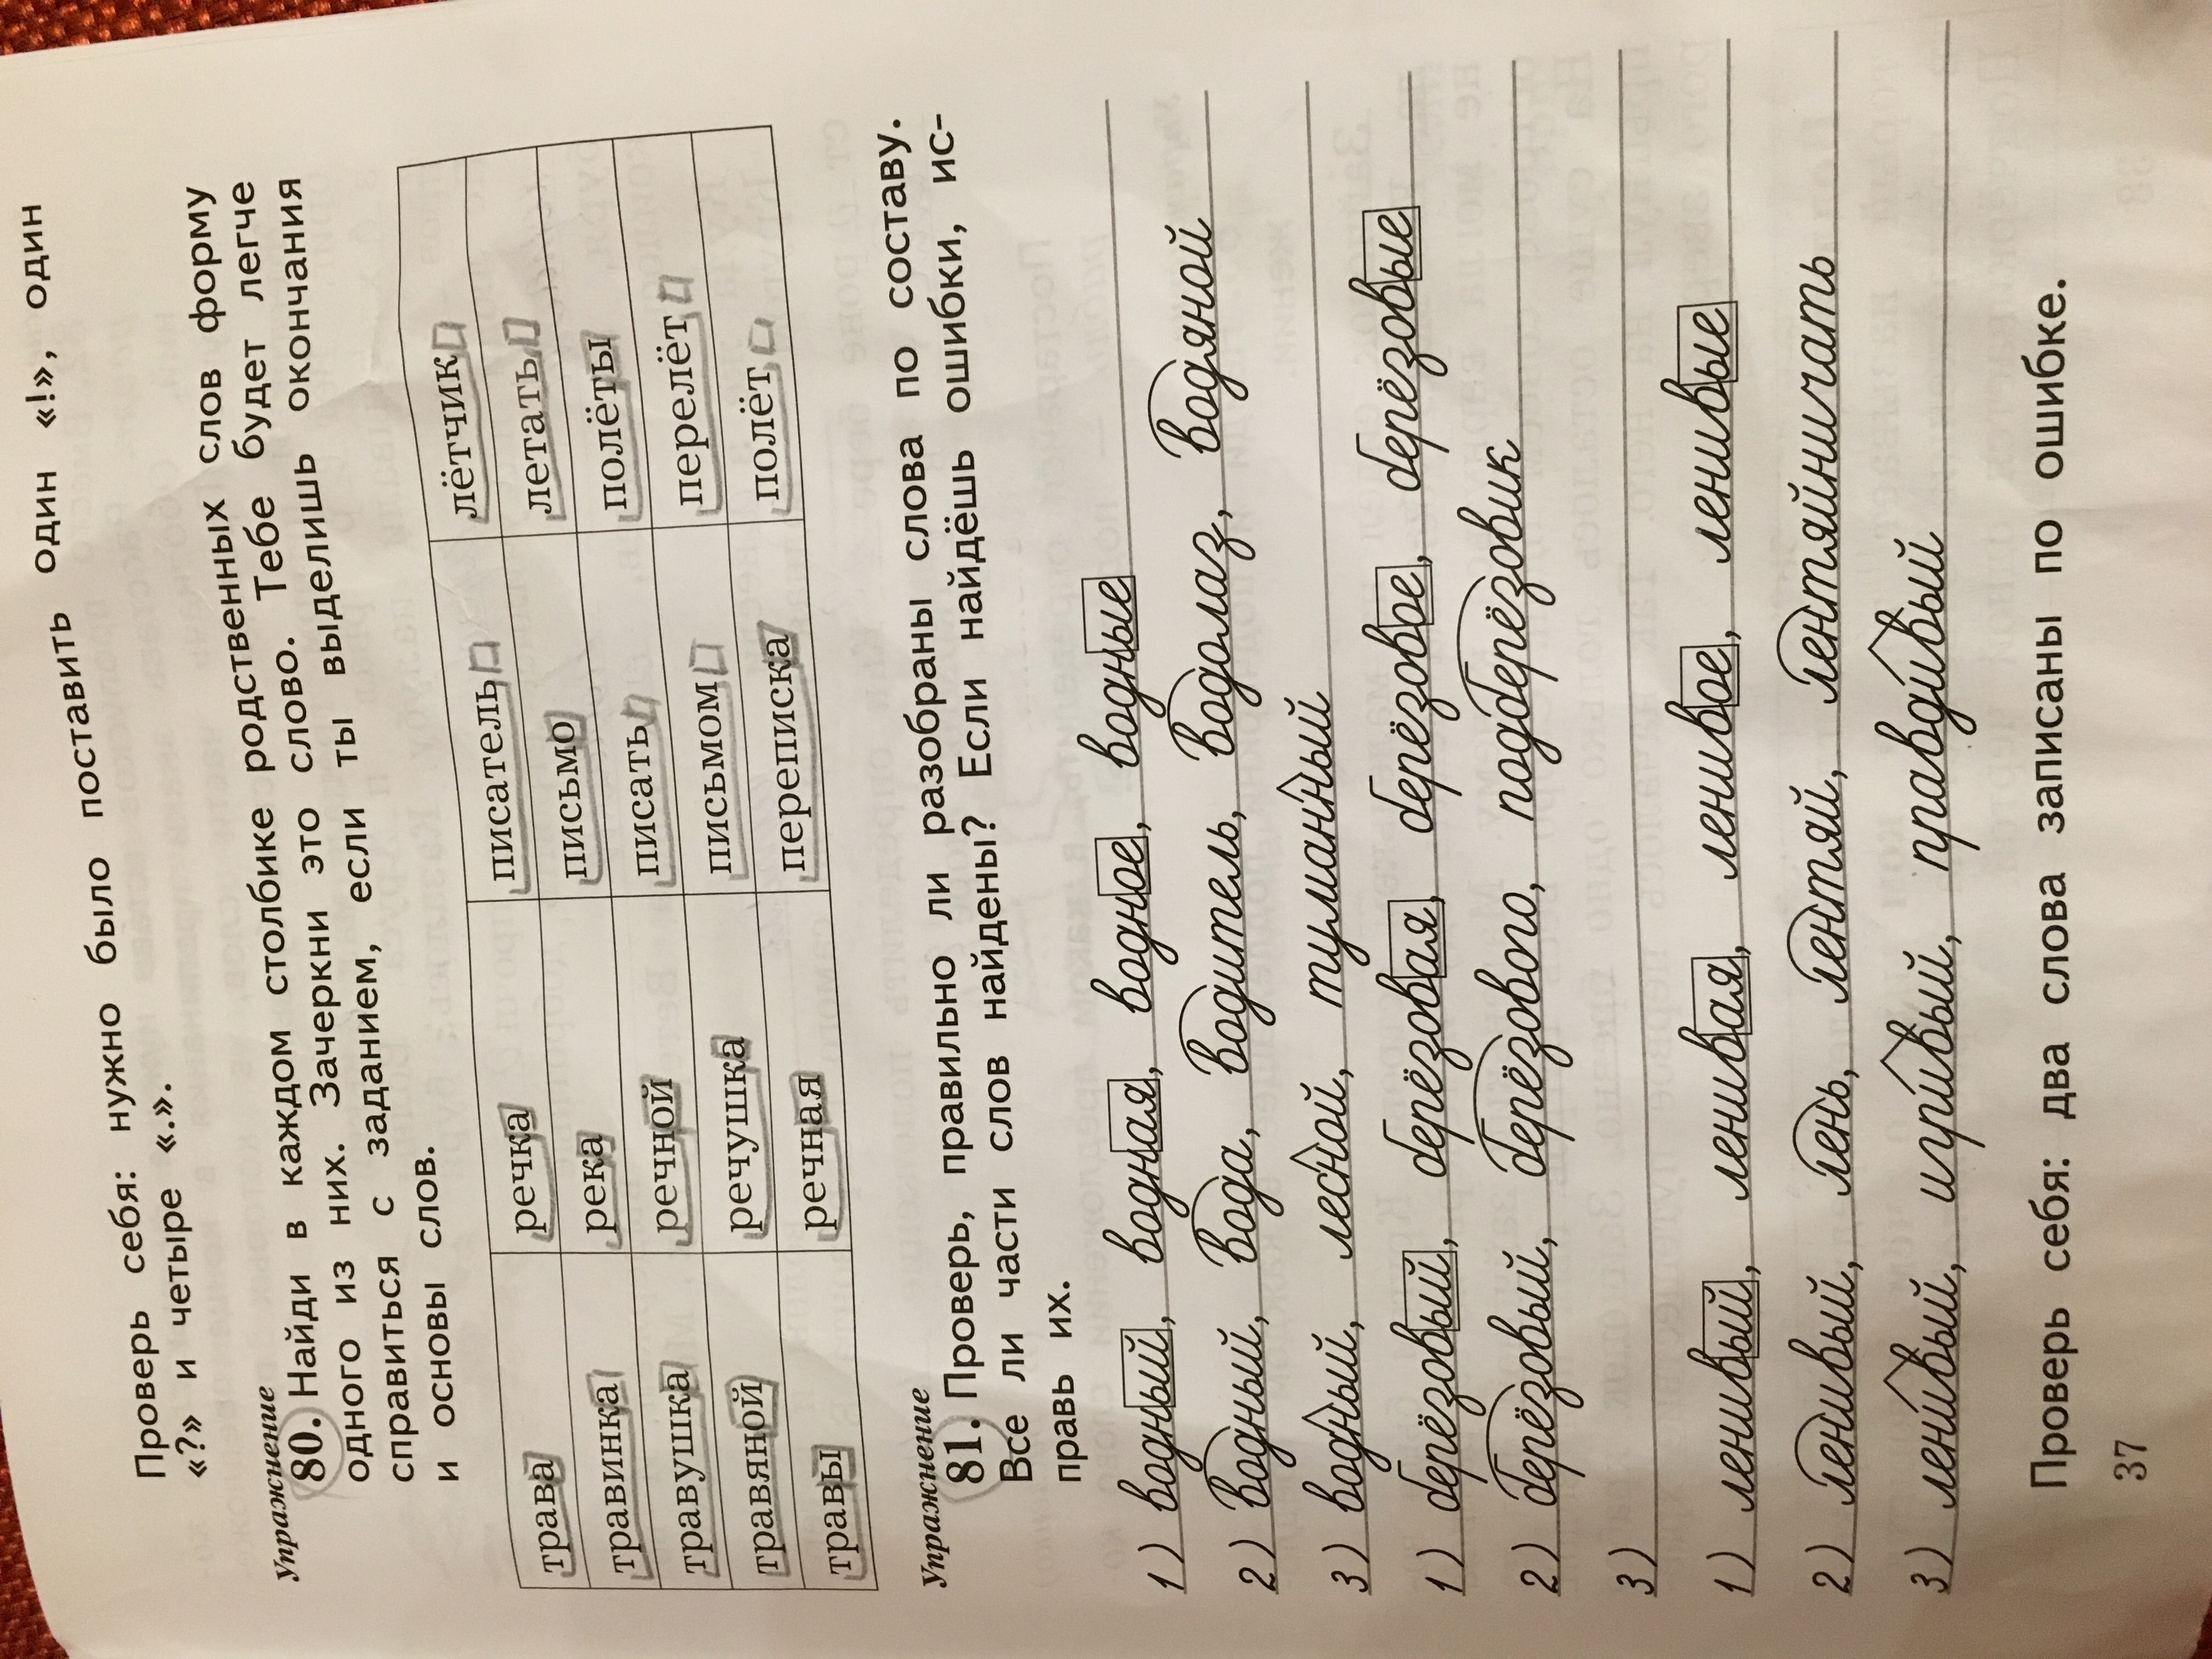 Проверь себя: нужно было поставить один «!», один
«?» и четыре «.».
Упражнение
80. Найди в каждом столбике родственных слов форму
одного из них. Зачеркни это слово. Тебе будет легче
справиться с заданием, если ты выделишь окончания
и основы слов.
трава речка писатель лётчик
травинка река письмо летать
травушка речной писать полёты
травяной речушка письмом перелёт
травы речная переписка полёт
Упражнение
81. Проверь, правильно ли разобраны слова по составу.
Все ли части слов найдены? Если найдёшь ошибки, ис-
правь их.
1) водный, водная, водное, водные
2) водный, вода, водитель, водолаз, водяной
3) водный, лесной, туманный
1) берёзовый, берёзовая, берёзовое, берёзовые
2) берёзовый, берёзового, подберёзовик
3)
1) ленивый, ленивая, ленивое, ленивые
2) ленивый, лень, лентяй, лентяйничать
3) ленивый, игривый, правдивый
Проверь себя: два слова записаны по ошибке.
37